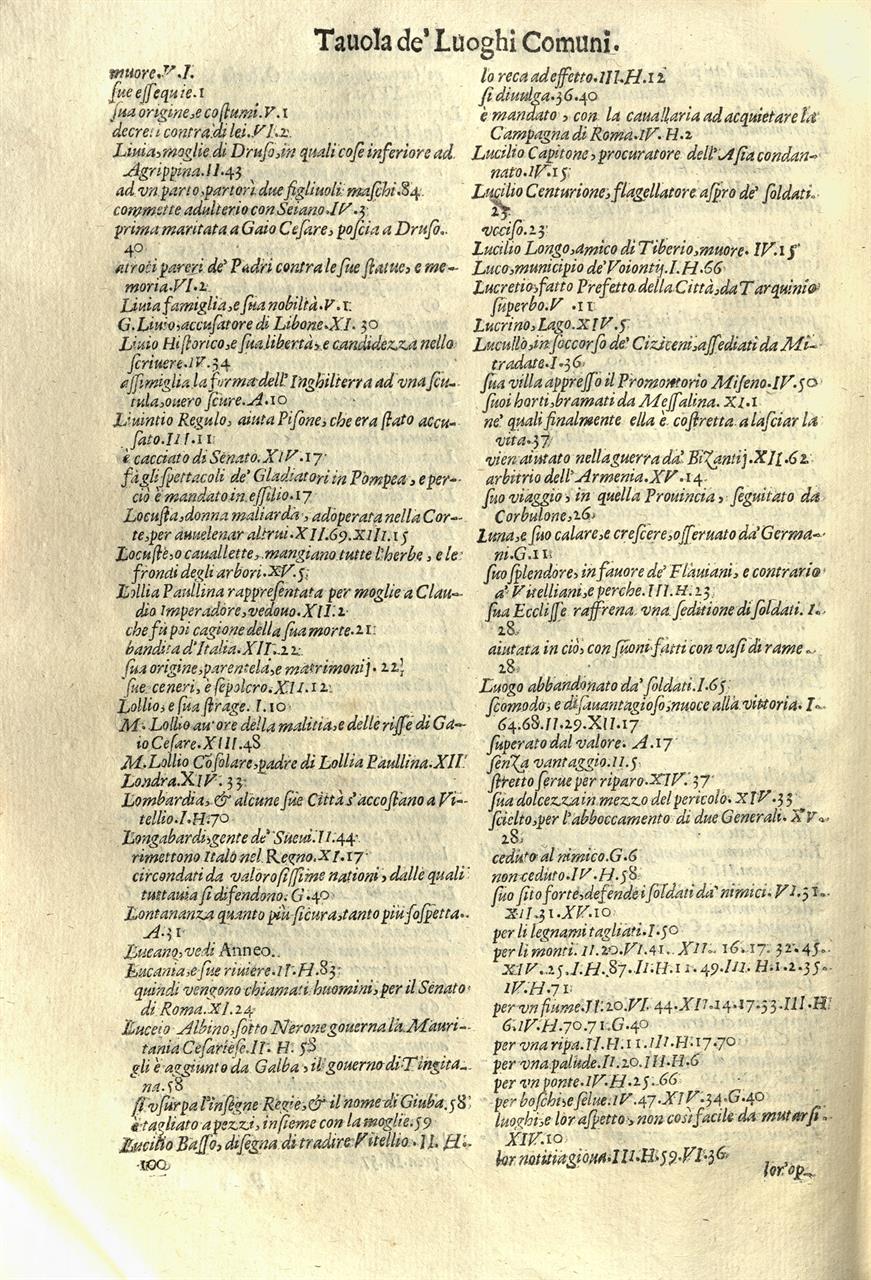 Tauola de' Luoghi Comuni.
muore.V.I.
sue essequie.1
sua origine,e costumi.V.1
decreti contra di lei.VI.2
Liuia,moglie di Druso,in quali cose inferiore ad
Agrippina.II.43
ad vn parto,partorì due figliuoli maschi.84
commette adulterio con Seiano.IV.3
prima maritata a Gaio Cesare, poscia a Druso.
40
atroci pareri de' Padri contra le sue statue, e me-
moria.VI.2
Liuia famiglia,e sua nobiltà.V.1
G.Liuio,accusatore di Libone.XI. 30
Liuio Historico,e sua libertà, e candidezza nello
scriuere.IV.34
assimiglia la forma dell'Inghilterra ad vna scu-
tula,ouero scure.A.10
Liuintio Regulo, aiuta Pisone, che era stato accu-
sato.III.11
è cacciato di Senato.XIV.17
fà gli spettacoli de' Gladiatori in Pompea, e per-
ciò è mandato in essilio.17
Locusta,donna maliarda, adoperata nella Cor-
te,per auuelenar altrui.XII.69.XIII.15
Locuste,o cauallette, mangiano tutte l'herbe, e le
frondi degli arbori.XV.5
Lollia Paullina rappresentata per moglie a Clau-
dio Imperadore,vedouo.XII.2
che fù poi cagione della sua morte.21
bandita d'Italia.XII.22
sua origine,parentela,e matrimonij. 22
sue ceneri, e sepolcro.XII.12
Lollio,e sua strage. I.10
M. Lollio autore della malitia,e delle risse di Ga-
io Cesare.XIII.48
M.Lollio Cōsolare,padre di Lollia Paullina.XII
Londra.XIV. 33
Lombardia, & alcune sue Città s'accostano a Vi-
tellio.I.H.70
Longabardi,gente de' Sueui.II.44
rimettono Italo nel Regno.XI.17
circondati da valorosissime nationi, dalle quali
tuttauia si difendono. G.40
Lontananza quanto più sicura,tanto più sospetta.
A.31
Lucano,vedi Anneo.
Lucania,e sue riuiere.II.H.83
quindi vengono chiamati huomini,per il Senato
di Roma.XI.24
Luceio Albino,sotto Nerone gouerna la Mauri-
tania Cesariese.II. H. 58
gli è aggiunto da Galba, il gouerno di Tingita-
na.58
si vsurpa l'insegne Regie,& il nome di Giuba.58
è tagliato a pezzi, insieme con la moglie.59
Lucilio Basso, disegna di tradire Vitellio. II. H.
100
lo reca ad effetto.III.H.12
si diuulga.36.40
è mandato, con la cauallaria ad acquietare la
Campagna di Roma.IV. H.2
Lucilio Capitone, procuratore dell'Asia condan-
nato.IV.15
Lucilio Centurione,flagellatore aspro de' soldati.
23
vcciso.23
Lucilio Longo,amico di Tiberio,muore. IV.15
Luco,municipio de' Voiontij.I.H.66
Lucretio,fatto Prefetto della Città,da Tarquinio
superbo.V .11
Lucrino,Lago.XIV.5
Lucullo,in soccorso de' Ciziceni,assediati da Mi-
tradate.I.36
sua villa appresso il Promontorio Miseno.IV.50
suoi horti,bramati da Messalina. XI.1
ne' quali finalmente ella è costretta a lasciar la
vita.37
vien aiutato nella guerra da' Bizantij.XII.62
arbitrio dell'Armenia.XV.14
suo viaggio, in quella Prouincia, seguitato da
Corbulone,26
Luna,e suo calare,e crescere,osseruato da' Germa-
ni.G.11
suo splendore, in fauore de' Flauiani, e contrario
a' Vitelliani,e perche.III.H.23
sua Ecclisse raffrena vna seditione di soldati. I.
28
aiutata in ciò, con suoni fatti con vasi di rame.
28
Luogo abbandonato da' soldati.I.65
scomodo, e disauantagioso,nuoce alla vittoria. I.
64.68.II.29.XII.17
superato dal valore. A.17
senza vantaggio.II.5
stretto serue per riparo.XIV.37
sua dolcezza in mezzo del pericolo.XIV.33
scielto,per l'abboccamento di due Generali. XV.
28
ceduto al nimico.G.6
non ceduto.IV.H.58
suo sito forte,defende i soldati da' nimici. VI.31
XII.31.XV.10
per li legnami tagliati.I.50
per li monti. II.20.VI.41. XII. 16.17.32.45.
XIV.25.I.H.87.II.H.11.49.III. H.1.2.35
IV.H.71
per vn fiume.II.20.VI.44.XII.14.17.33.III.H
6.IV.H.70.71.G.40
per vna ripa.II.H.11.III.H.17.70
per vna palude.II.20.III.H.6
per vn ponte.IV.H.25.66
per boschi,e selue.IV.47.XIV.34.G.40
luoghi,e lor aspetto, non così facile da mutarsi.
XIV.10
lor notitia gioua.III.H.59.VI.36
lor'op-